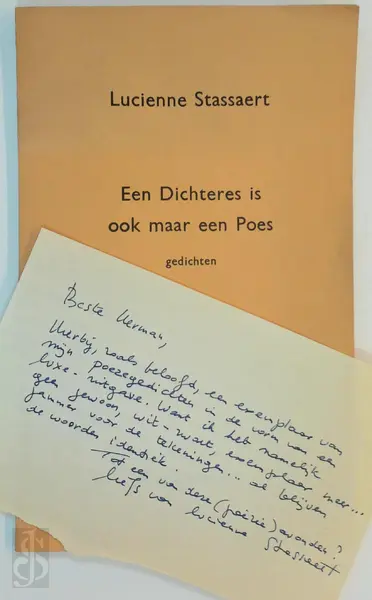 Lucienne Stassaert
Een Dichteres is
ook maar een Poes
gedichten
Beste Herman,
Hierbij, zoals beloofd, een exemplaar van
mijn poezegedichten in de vorm van een
luxe-uitgave. Want ik heb namelijk
geen gewoon, wit-zwart, exemplaar meer...
jammer voor de tekeningen... al blijven
de woorden identiek.
Tot een van deze (poëzie)avonden?
liefs van Lucienne Stassaert